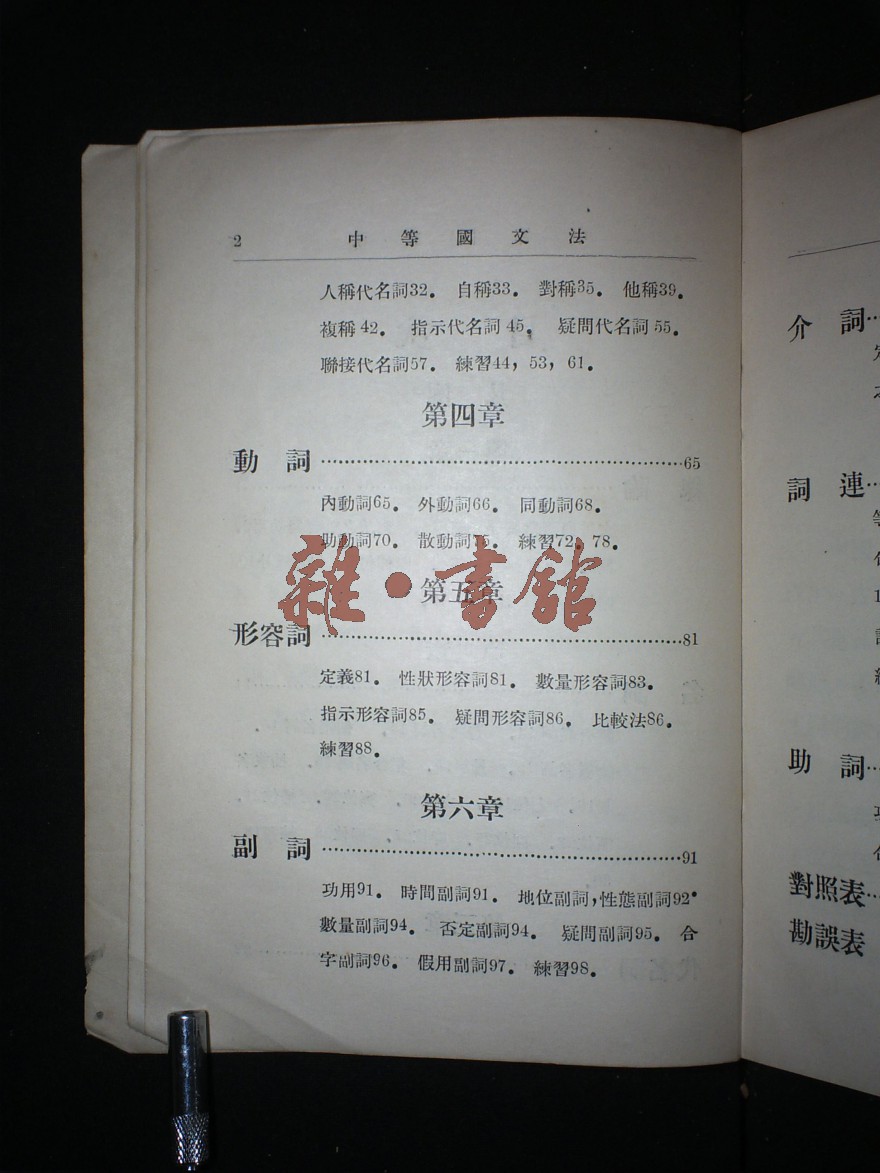 2 中等國文法
人稱代名詞32。 自稱33。 對稱35。 他稱39。
複稱42。 指示代名詞45。 疑問代名詞55。
聯接代名詞57。 練習44，53，61。
第四章
動詞……65
內動詞65。 外動詞66。 同動詞68。
助動詞70。 散動詞75。 練習72，78。
第五章
形容詞……81
定義81。 性狀形容詞81。 數量形容詞83。
指示形容詞85。 疑問形容詞86。 比較法86。
練習88。
第六章
副詞……91
功用91。 時間副詞91。 地位副詞，性態副詞92。
數量副詞94。 否定副詞94。 疑問副詞95。 合
字副詞96。 假用副詞97。 練習98。
雜·書館
介詞…
詞連…
助詞…
對照表…
勘誤表